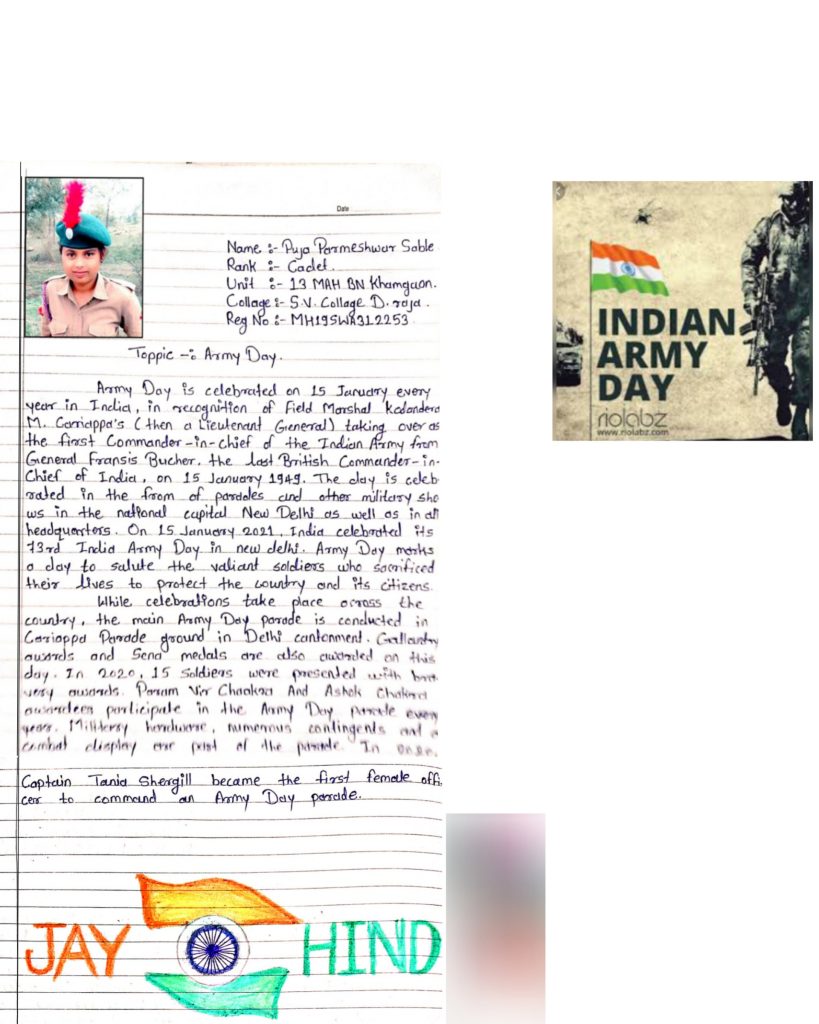 Date
Name :- Puja Parmeshwar Sable
Rank :- Cadet.
Unit :- 13 MAH BN Khamgaon.
Collage :- S.V. Collage D. raja.
Reg No :- MH19SWA312253
Toppic -: Army Day.
Army Day is celebrated on 15 January every
year in India, in recognition of Field Marshal Kodandera
M. Carriappa's (then a Lieutenant General) taking over as
the first Commander-in-chief of the Indian Army from
General Fransis Bucher, the last British Commander-in-
Chief of India, on 15 January 1949. The day is celeb
rated in the from of parades and other military sho
ws in the national capital New Delhi as well as in all
headquarters. On 15 January 2021, India celebrated its
73rd India Army Day in new delhi. Army Day marks
a day to salute the valiant soldiers who sacrificed
their lives to protect the country and its citizens.
While celebrations take place across the
country, the main Army Day parade is conducted in
Cariappa Parade ground in Delhi cantonment. Gallantry
awards and Sena medals are also awarded on this
day. In 2020, 15 soldiers were presented with bra
very awards. Param Vir Chaakra And Ashok Chakra
awardees participate in the Army Day parade every
year. Military hardware, numerous contingents and a
combat display are part of the parade. In
Captain Tania Shergill became the first female offi
cer to command an Army Day parade.
JAY HIND
INDIAN
ARMY
DAY
riolabz
www.riolabz.com